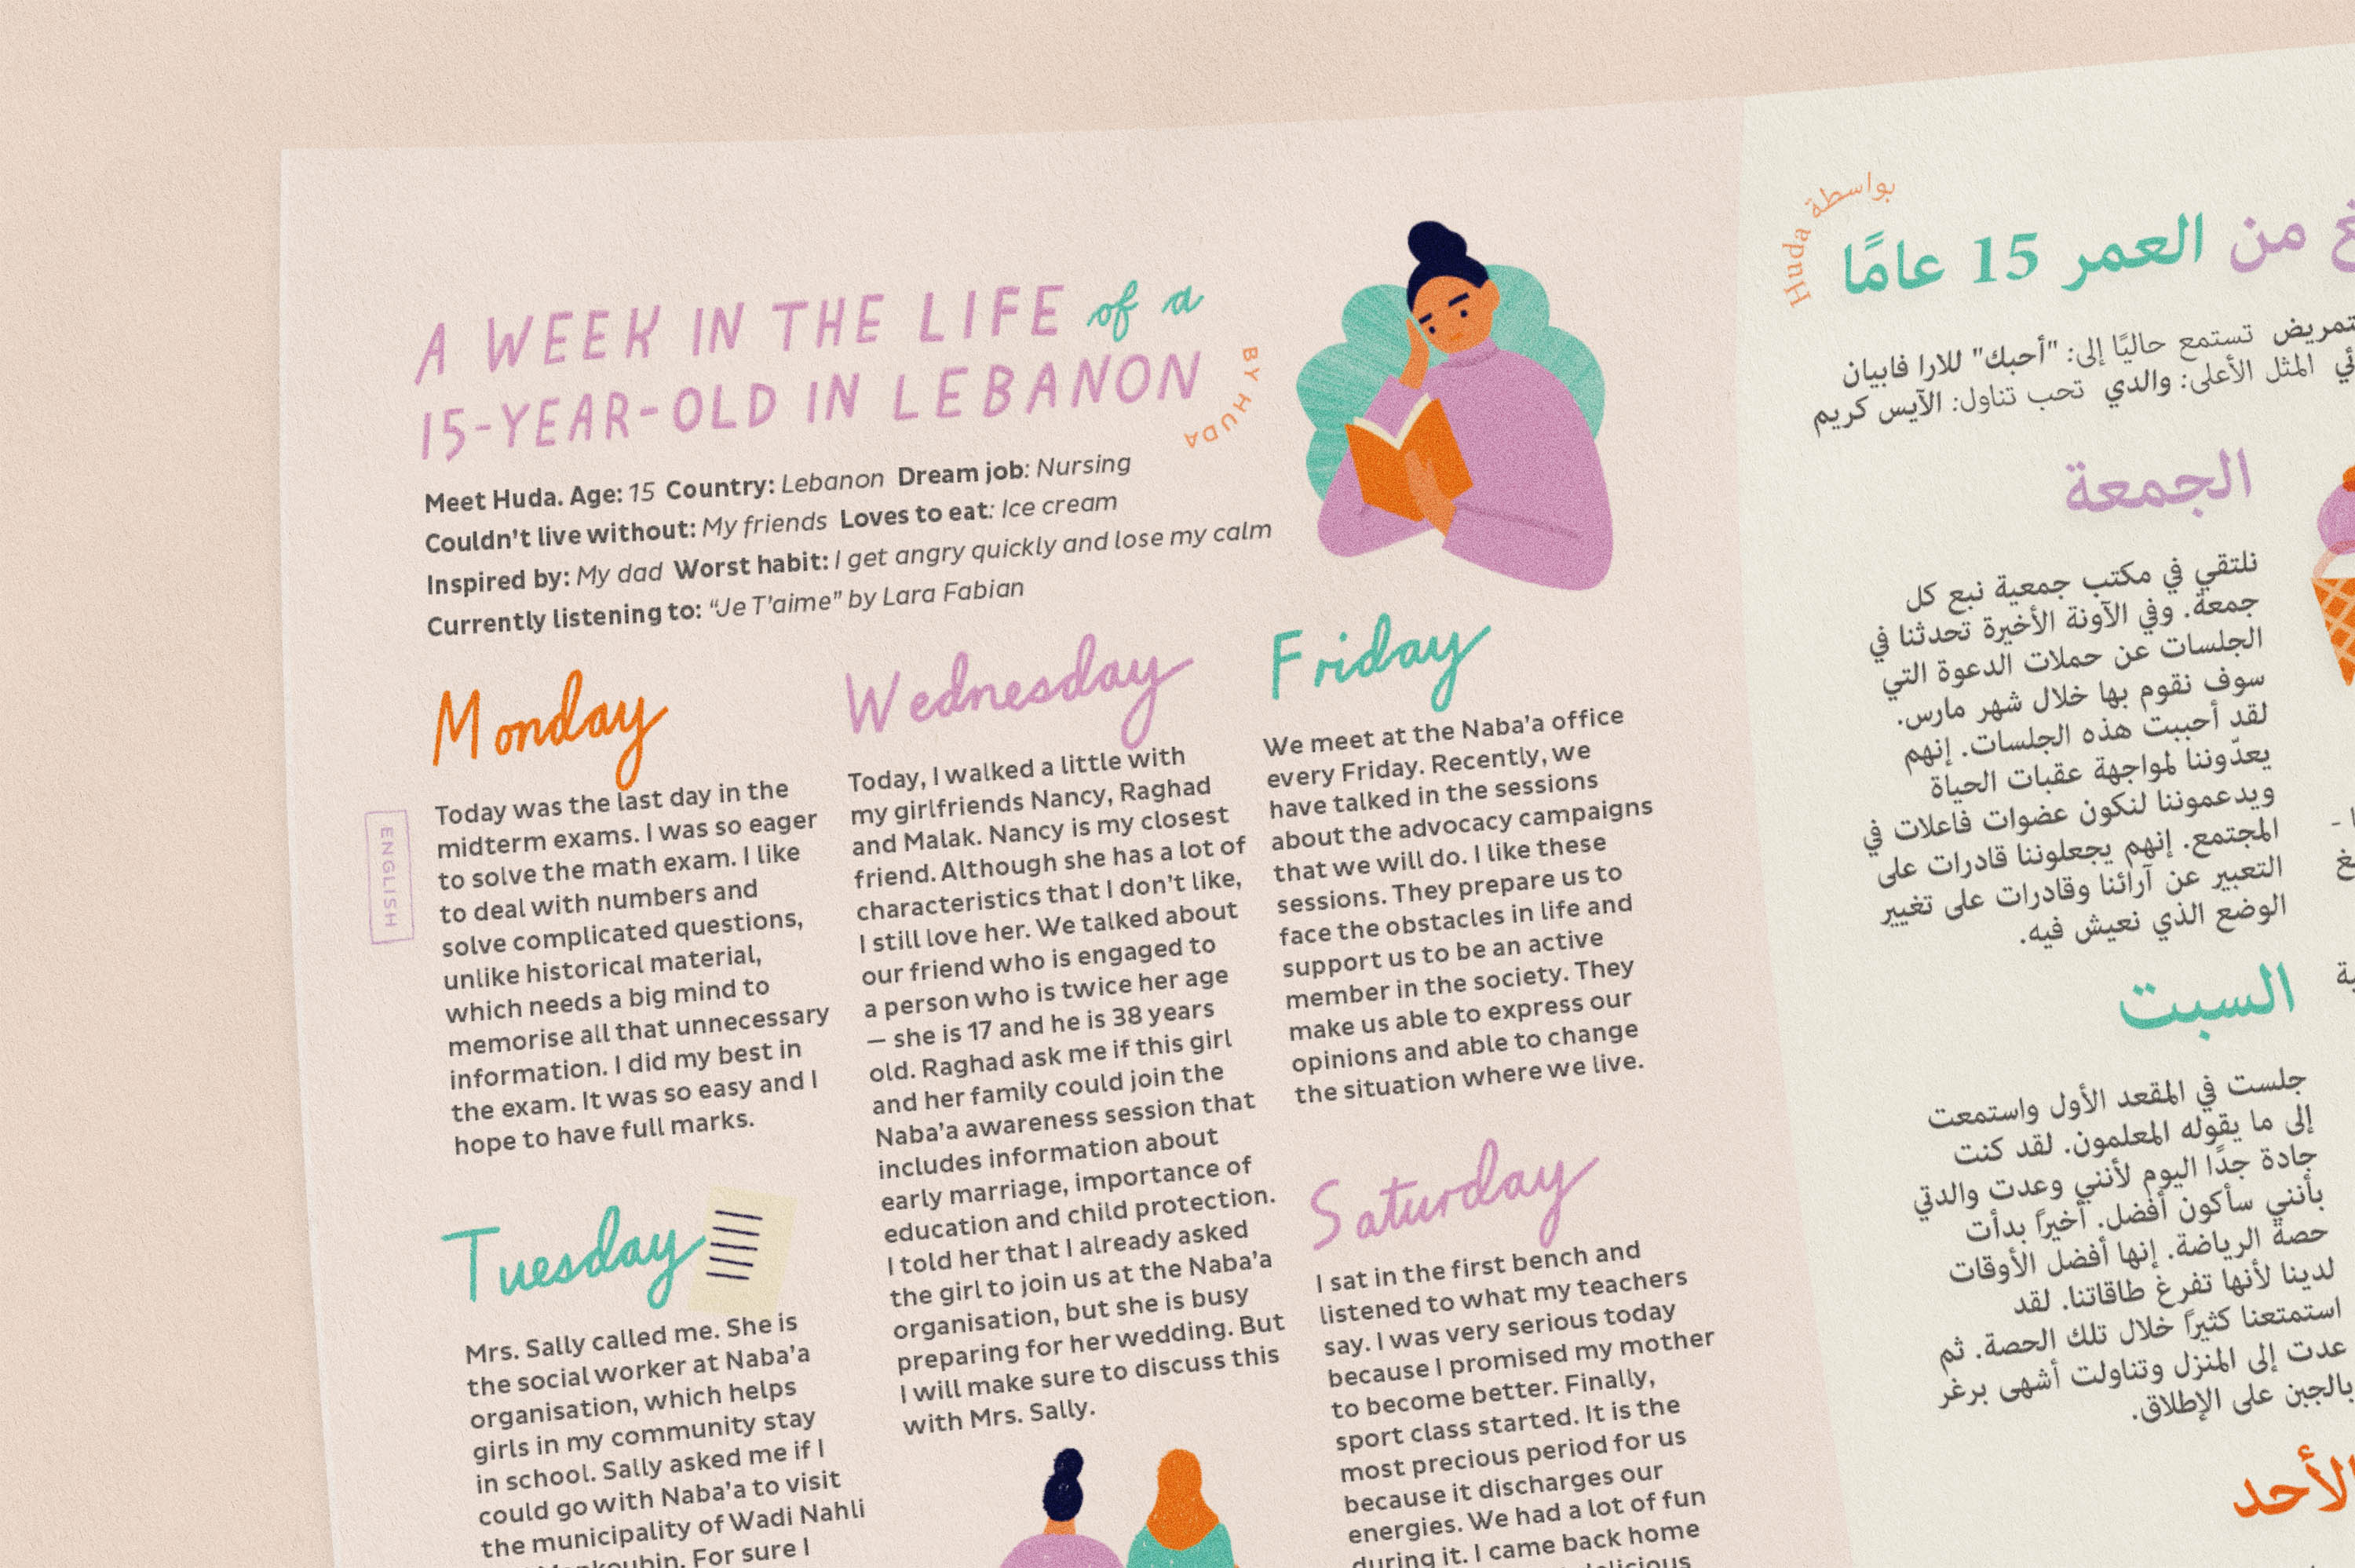 A WEEK IN THE LIFE of a
15-YEAR-OLD IN LEBANON
BY HUDA
Meet Huda. Age: 15 Country: Lebanon Dream job: Nursing
Couldn't live without: My friends Loves to eat: Ice cream
Inspired by: My dad Worst habit: I get angry quickly and lose my calm
Currently listening to: "Je T'aime" by Lara Fabian
ENGLISH
Monday
Today was the last day in the
midterm exams. I was so eager
to solve the math exam. I like
to deal with numbers and
solve complicated questions,
unlike historical material,
which needs a big mind to
memorise all that unnecessary
information. I did my best in
the exam. It was so easy and I
hope to have full marks.
Tuesday
Mrs. Sally called me. She is
the social worker at Naba'a
organisation, which helps
girls in my community stay
in school. Sally asked me if I
could go with Naba'a to visit
the municipality of Wadi Nahli
For sure I
Wednesday
Today, I walked a little with
my girlfriends Nancy, Raghad
and Malak. Nancy is my closest
friend. Although she has a lot of
characteristics that I don't like,
I still love her. We talked about
our friend who is engaged to
a person who is twice her age
– she is 17 and he is 38 years
old. Raghad ask me if this girl
and her family could join the
Naba'a awareness session that
includes information about
early marriage, importance of
education and child protection.
I told her that I already asked
the girl to join us at the Naba'a
organisation, but she is busy
preparing for her wedding. But
I will make sure to discuss this
with Mrs. Sally.
Friday
We meet at the Naba'a office
every Friday. Recently, we
have talked in the sessions
about the advocacy campaigns
that we will do. I like these
sessions. They prepare us to
face the obstacles in life and
support us to be an active
member in the society. They
make us able to express our
opinions and able to change
the situation where we live.
Saturday
I sat in the first bench and
listened to what my teachers
say. I was very serious today
because I promised my mother
to become better. Finally,
sport class started. It is the
most precious period for us
because it discharges our
energies. We had a lot of fun
during it. I came back home
delicious
بواسطة Huda
من العمر 15 عامًا
تستمع حاليًا إلى: "أحبك" للارا فابيان
المثل الأعلى: والدي تحب تناول: الآيس كريم
الجمعة
نلتقي في مكتب جمعية نبع كل
جمعة. وفي الآونة الأخيرة تحدثنا في
الجلسات عن حملات الدعوة التي
سوف نقوم بها خلال شهر مارس.
لقد أحببت هذه الجلسات. إنهم
يعدّوننا لمواجهة عقبات الحياة
ويدعموننا لنكون عضوات فاعلات في
المجتمع. إنهم يجعلوننا قادرات على
التعبير عن آرائنا وقادرات على تغيير
الوضع الذي نعيش فيه.
السبت
جلست في المقعد الأول واستمعت
إلى ما يقوله المعلمون. لقد كنت
جادة جدًا اليوم لأنني وعدت والدتي
بأنني سأكون أفضل. أخيرًا بدأت
حصة الرياضة. إنها أفضل الأوقات
لدينا لأنها تفرغ طاقاتنا. لقد
استمتعنا كثيرًا خلال تلك الحصة. ثم
عدت إلى المنزل وتناولت أشهى برغر
بالجبن على الإطلاق.
الأحد